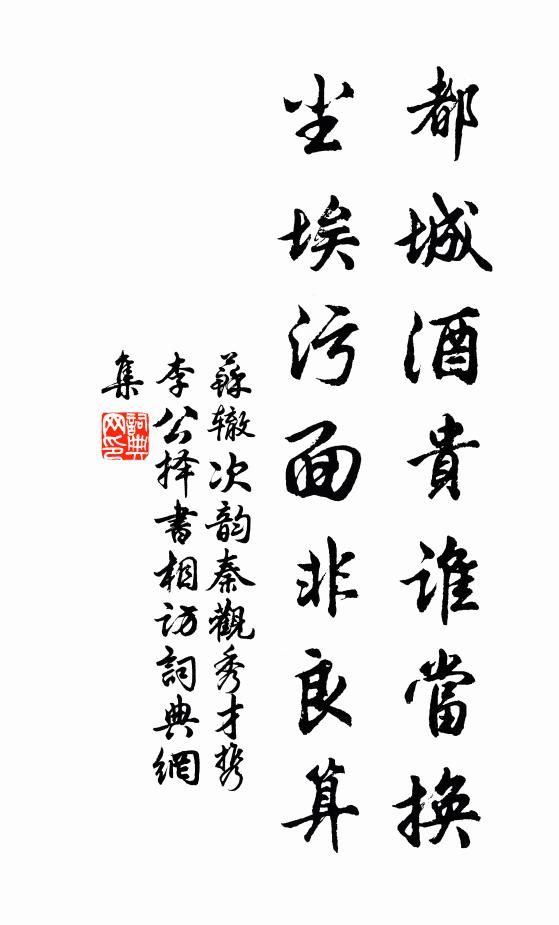 都城酒貴誰當換
尘埃污面非良算
蘇辙次韵秦觀秀才携
李公择書相访詞典網
集
詞典网印